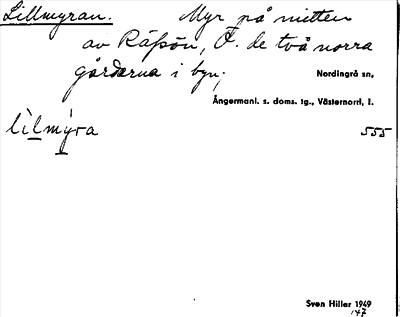 Lillmyran. Myr på mitten
av Räfsön, Ö. de två norra
gårdarna i byn;
Nordingrå sn,
Ångermanl. s. doms. tg., Västernorrl. l.
lìlmýra 555
Sven Hiller 1949
147